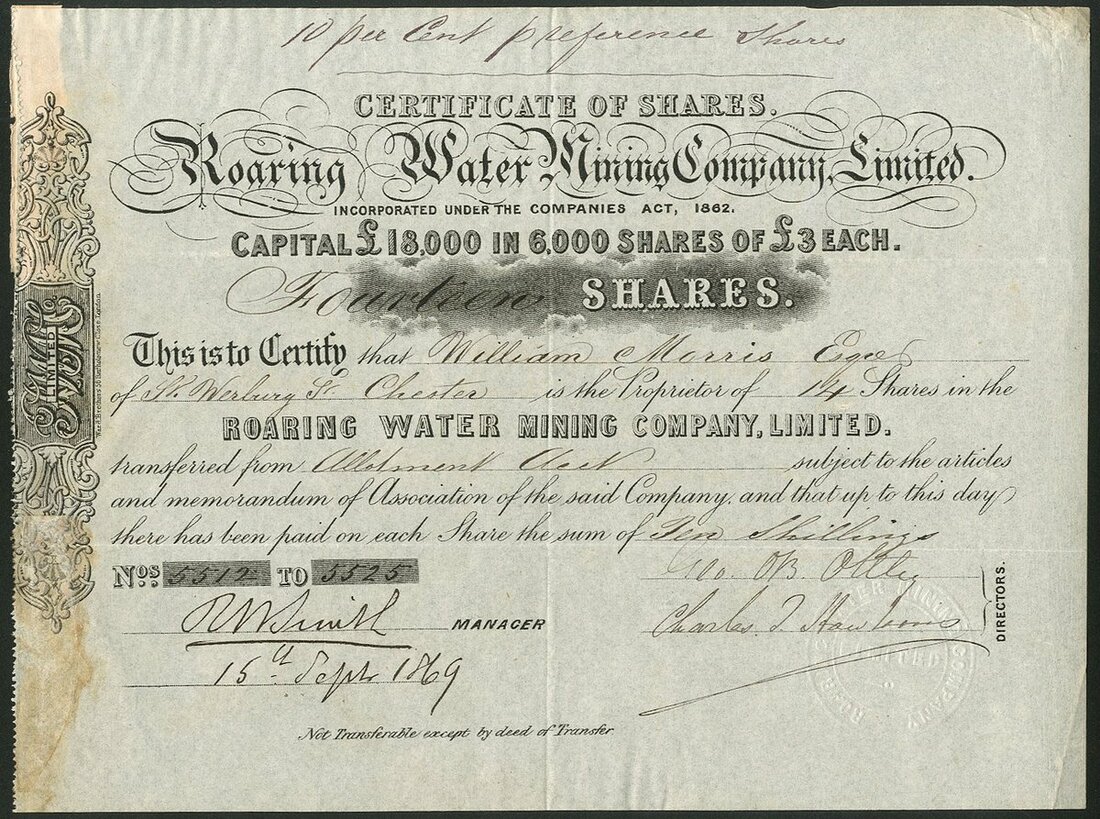 10 per Cent preference Shares
CERTIFICATE OF SHARES.
Roaring Water Mining Company, Limited.
INCORPORATED UNDER THE COMPANIES ACT, 1862.
CAPITAL £18,000 IN 6,000 SHARES OF £3 EACH.
Fourteen SHARES.
This is to Certify that William Morris Esqre
of St. Werburg St Chester is the Proprietor of 14 Shares in the
ROARING WATER MINING COMPANY, LIMITED.
transferred from Allotment Acct subject to the articles
and memorandum of Association of the said Company, and that up to this day
there has been paid on each Share the sum of Ten Shillings
Nos. 5512 TO 5525
Geo
R W Smith MANAGER
Charles J DIRECTORS.
15th Sept 1869
Not Transferable except by deed of Transfer
LIMITED
ROARING WATER MINING COMPANY LIMITED